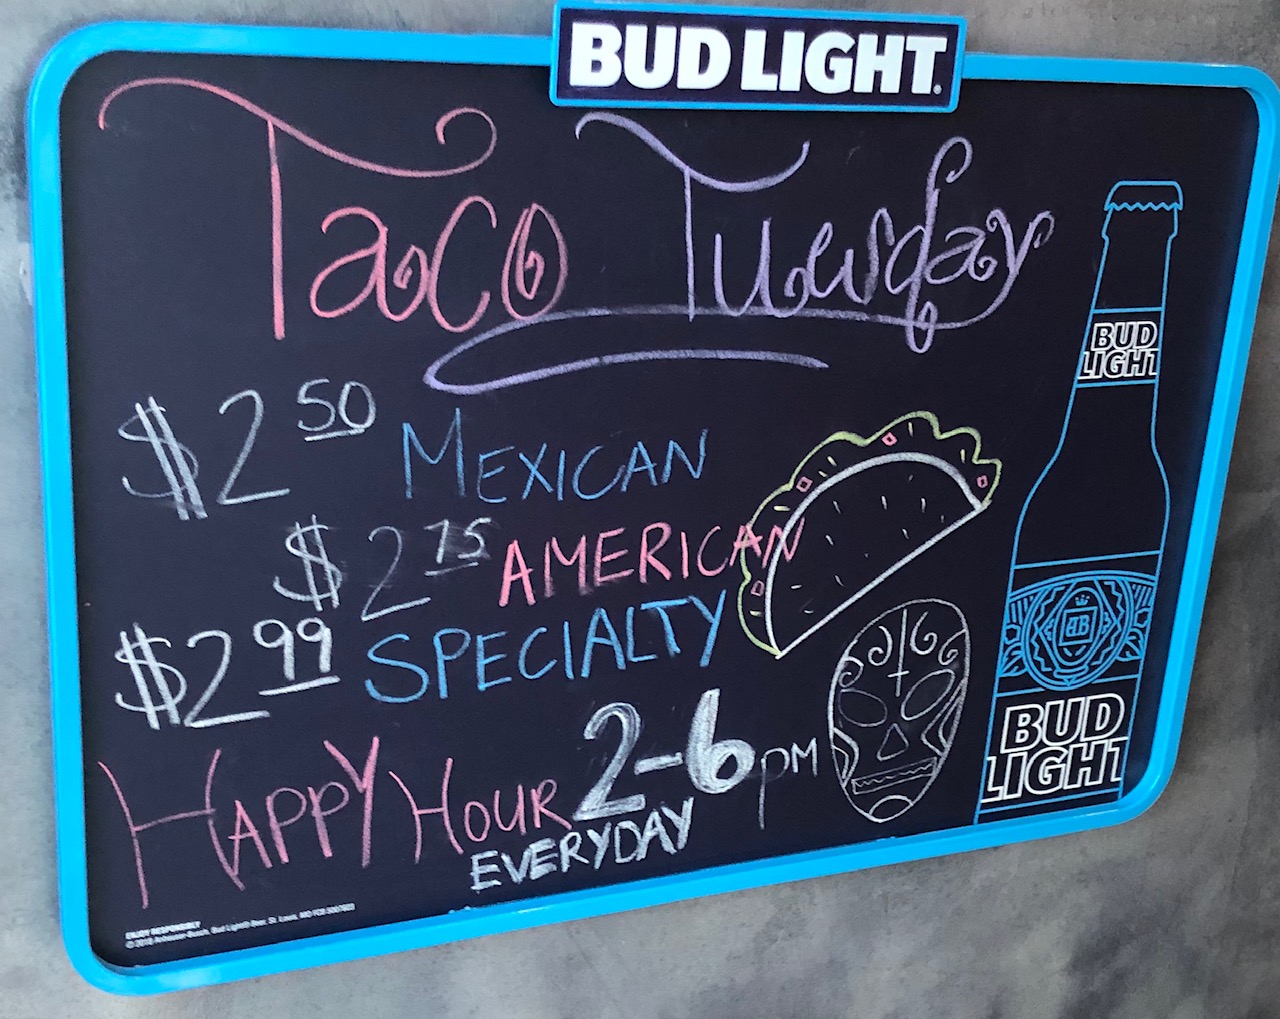 BUD LIGHT
Taco Tuesday
$2.50 MEXICAN
$2.75 AMERICAN
$2.99 SPECIALTY
HAPPY HOUR 2-6 PM
EVERYDAY
BUD
LIGHT
BUD
LIGHT
ENJOY RESPONSIBLY